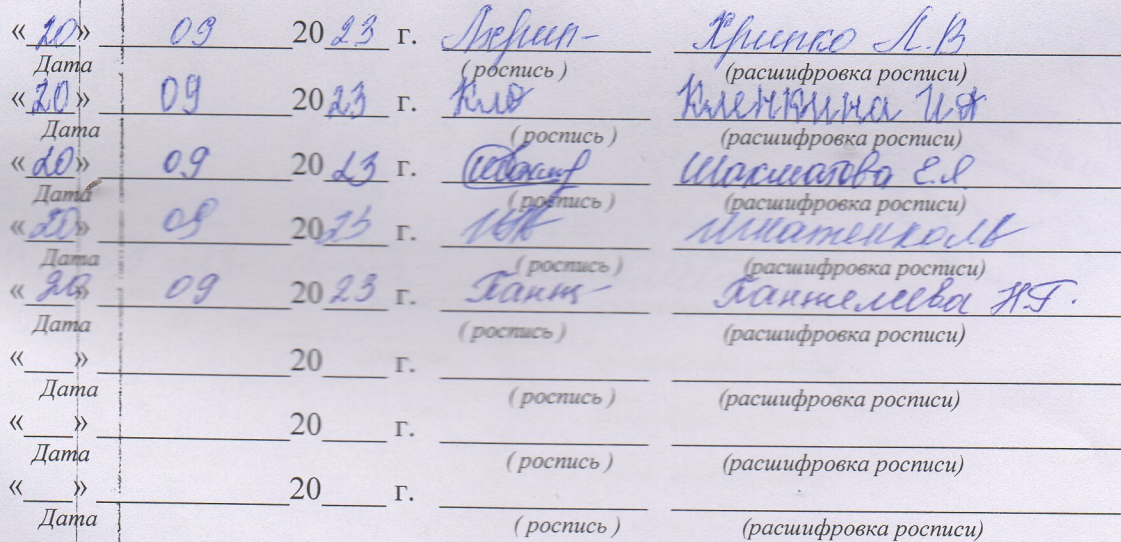 «20» 09 2023 г. Хрип- Хрипко Л.В
Дата ( роспись ) (расшифровка росписи)
«20 09 2023 г. Кле Кленкина И А
Дата ( роспись ) (расшифровка росписи)
«20» 09 2023 г. Шахматова Е.Я
Дата ( роспись ) (расшифровка росписи)
«20» 09 2023 г. Игнатенко
Дата ( роспись ) (расшифровка росписи)
«20» 09 2023 г. Пант- Пантелеева Н.Г.
Дата ( роспись ) (расшифровка росписи)
«___» ____________20____ г.
Дата ( роспись ) (расшифровка росписи)
«___» ____________20____ г.
Дата ( роспись ) (расшифровка росписи)
«___» ____________20____ г.
Дата ( роспись ) (расшифровка росписи)